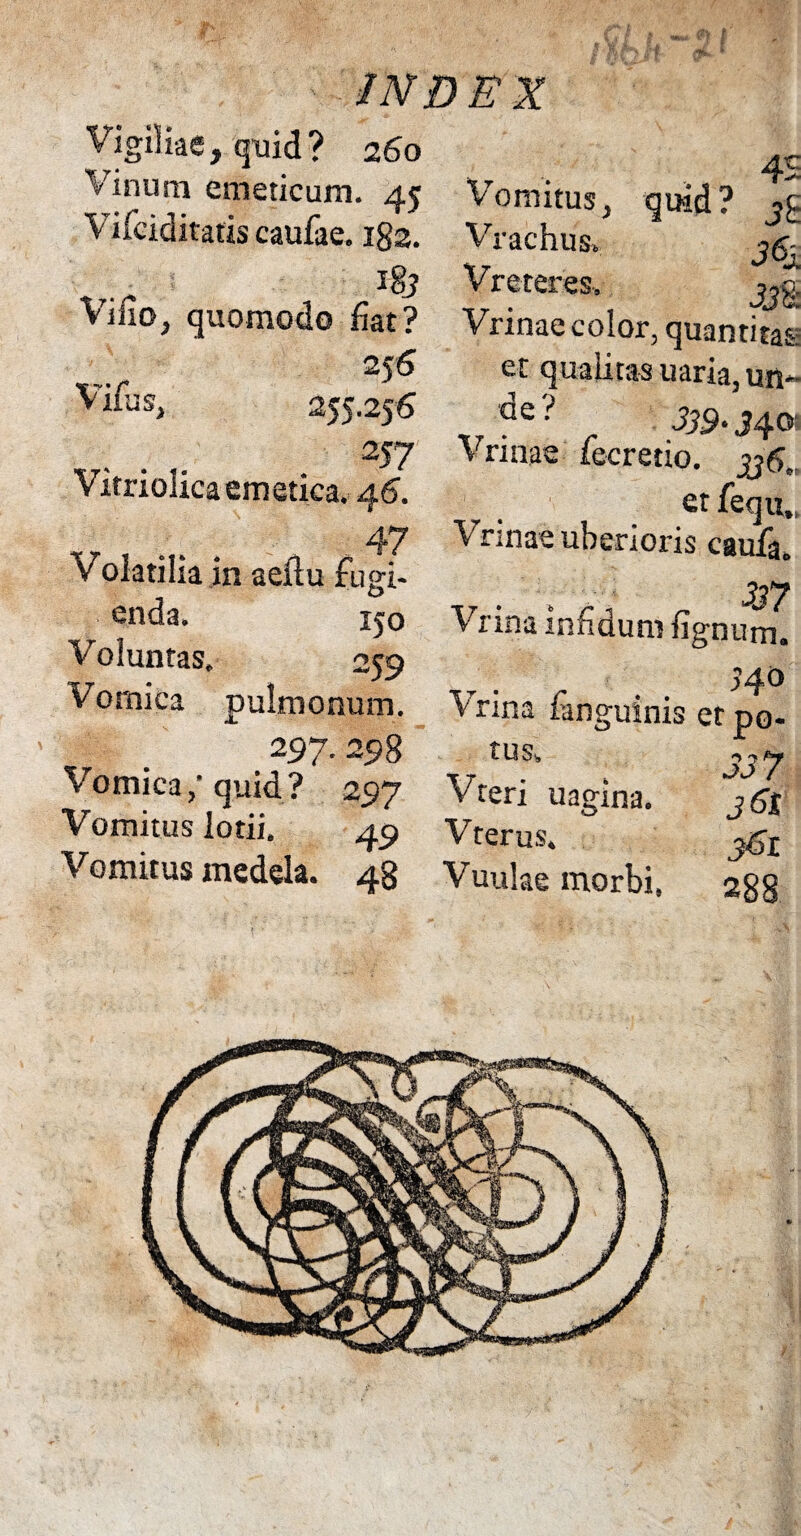 INDEX
Vigiliae, quid? 260
Vinum emeticum. 45
Viſciditatis cauſae. 182.
183
Viſio, quomodo fiat?
256
Viſus, 255.256
257
Vitriolica emetica. 46.
47
Volatilia in aeſtu fugi-
enda. 150
Voluntas. 259
Vomica pulmonum.
297. 298
Vomica, quid? 297
Vomitus lotii. 49
Vomitus medela. 48
Vomitus, quid?
Vrachus.
Vreteres. 338
Vrinae color, quantitas
et qualitas uaria, un-
de? 339. 340
Vrinae ſecretio. 336.
et ſequ.
Vrinae uberioris cauſa.
337
Vrina infidum ſignum.
340
Vrina ſanguinis et po-
tus. 337
Vteri uagina. 361
Vterus. 361
Vuulae morbi. 288